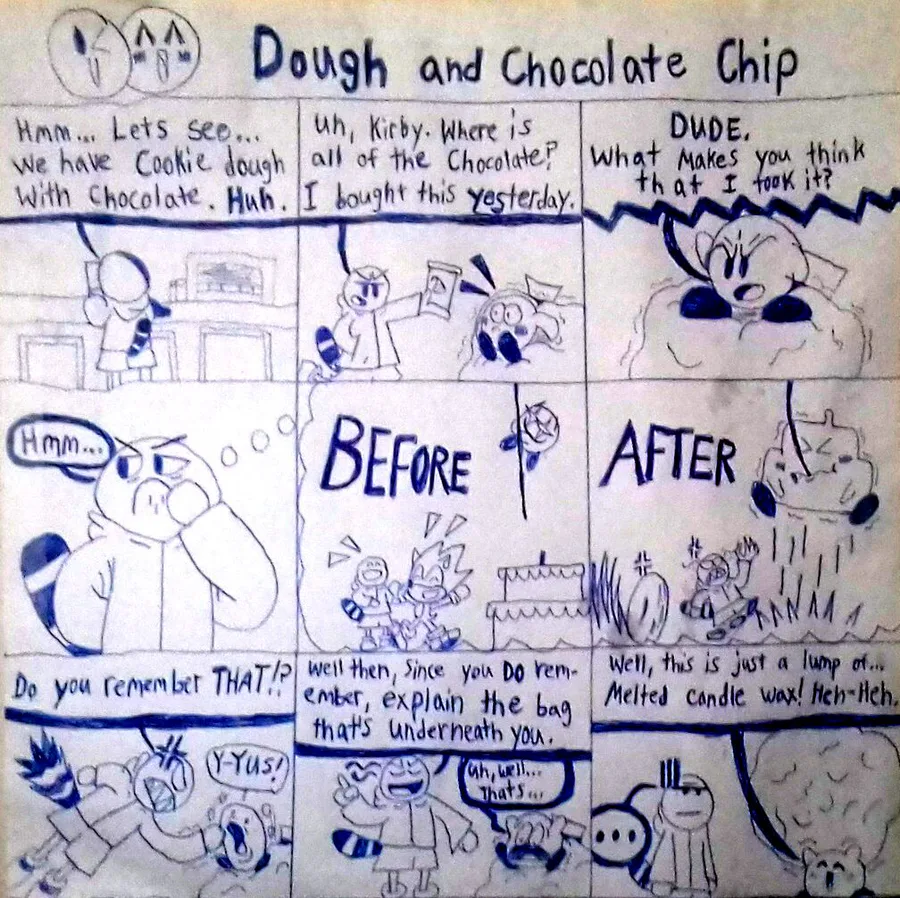 Dough and Chocolate Chip
Hmm... Lets see...
we have Cookie dough
With Chocolate. Huh.
Uh, Kirby. Where is
all of the Chocolate?
I bought this yesterday.
DUDE.
What Makes you think
that I took it?
Hmm...
BEFORE
AFTER
Do you remember THAT!?
Y-Yus!
Well then, Since you DO rem-
ember, explain the bag
that's underneath you.
Uh, well...
That's...
Well, this is just a lump of...
Melted candle wax! Heh-Heh.
...